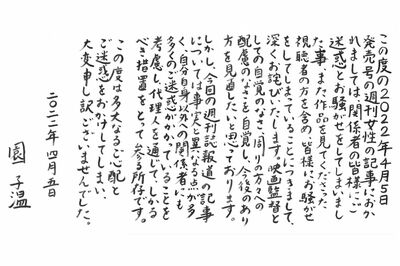 この度の2022年4月5日
発売号の週刊女性の記事におか
れましては関係者の皆様にご
迷惑とお騒がせをしてしまいまし
た事、また作品を見てくださった
視聴者の方を含め、皆様にお騒がせ
をしてしまっていることにつきまして、
深くお詫びいたします。映画監督と
しての自覚のなさ、周りの方々への
配慮のなさを自覚し、今後のあり
方を見直したいと思っております。
しかし、今回の週刊誌報道の記事
については事実と異なる点が多
く、自分自身以外の関係者にも
多くのご迷惑がかかっていることを
考慮し、代理人を通じて、しかる
べき措置をとって参る所存です。
この度は多大なるご心配と
ご迷惑をおかけしてしまい、
大変申し訳ございませんでした。
二〇二二年 四月 五日
園 子温